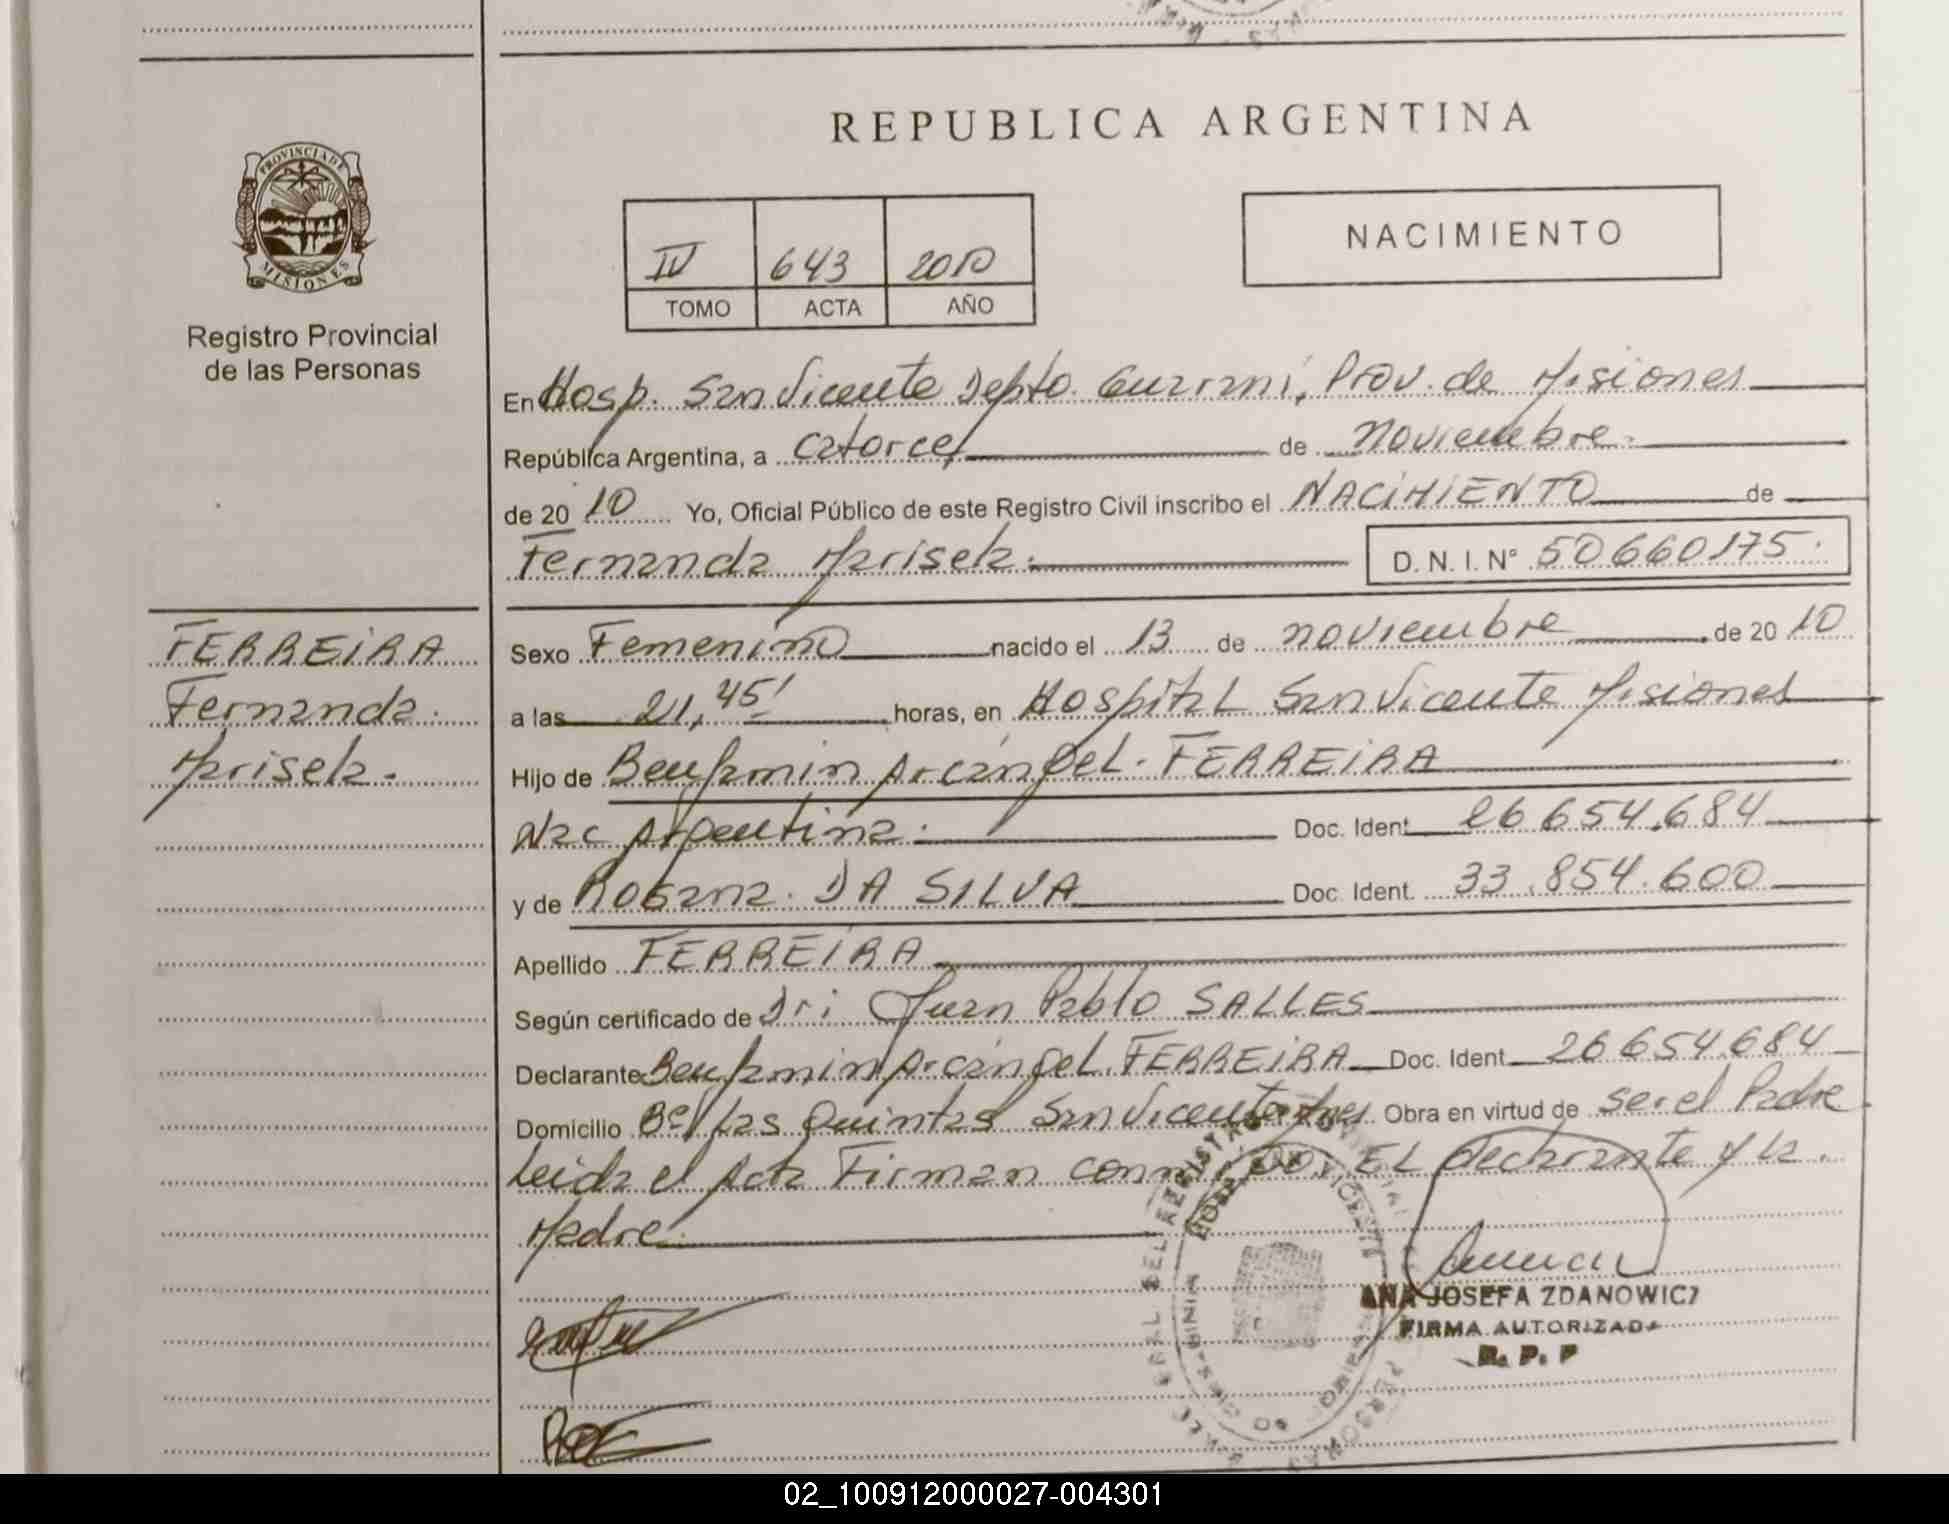 REPUBLICA ARGENTINA
PROVINCIA DE
MISIONES
Registro Provincial
de las Personas
IV 643 2010
TOMO ACTA AÑO
NACIMIENTO
En Hosp. San Vicente Depto. Guarani, Prov. de Misiones
República Argentina, a catorce, de noviembre.
de 2010 Yo, Oficial Público de este Registro Civil inscribo el NACIMIENTO de
Fernanda Marisela. D. N. I. N° 50660175.
FERREIRA
Fernanda.
Marisela.
Sexo Femenino nacido el 13 de noviembre de 2010
a las 21,45' horas, en Hospital San Vicente Misiones
Hijo de Benjamin Arcángel. FERREIRA
Nac Argentina. Doc. Ident 26654.684
y de Rosana. DA SILVA Doc. Ident. 33.854.600
Apellido FERREIRA
Según certificado de Dr: Juan Pablo SALLES
Declarante Benjamin Arcángel. FERREIRA Doc. Ident 26654.684
Domicilio B°/ Las Quintas San Vicente Obra en virtud de ser el Padre
Leida el Acta Firman EL declarante y la.
Madre.
ANA JOSEFA ZDANOWICZ
FIRMA AUTORIZADA
R. P. P
02_100912000027-004301